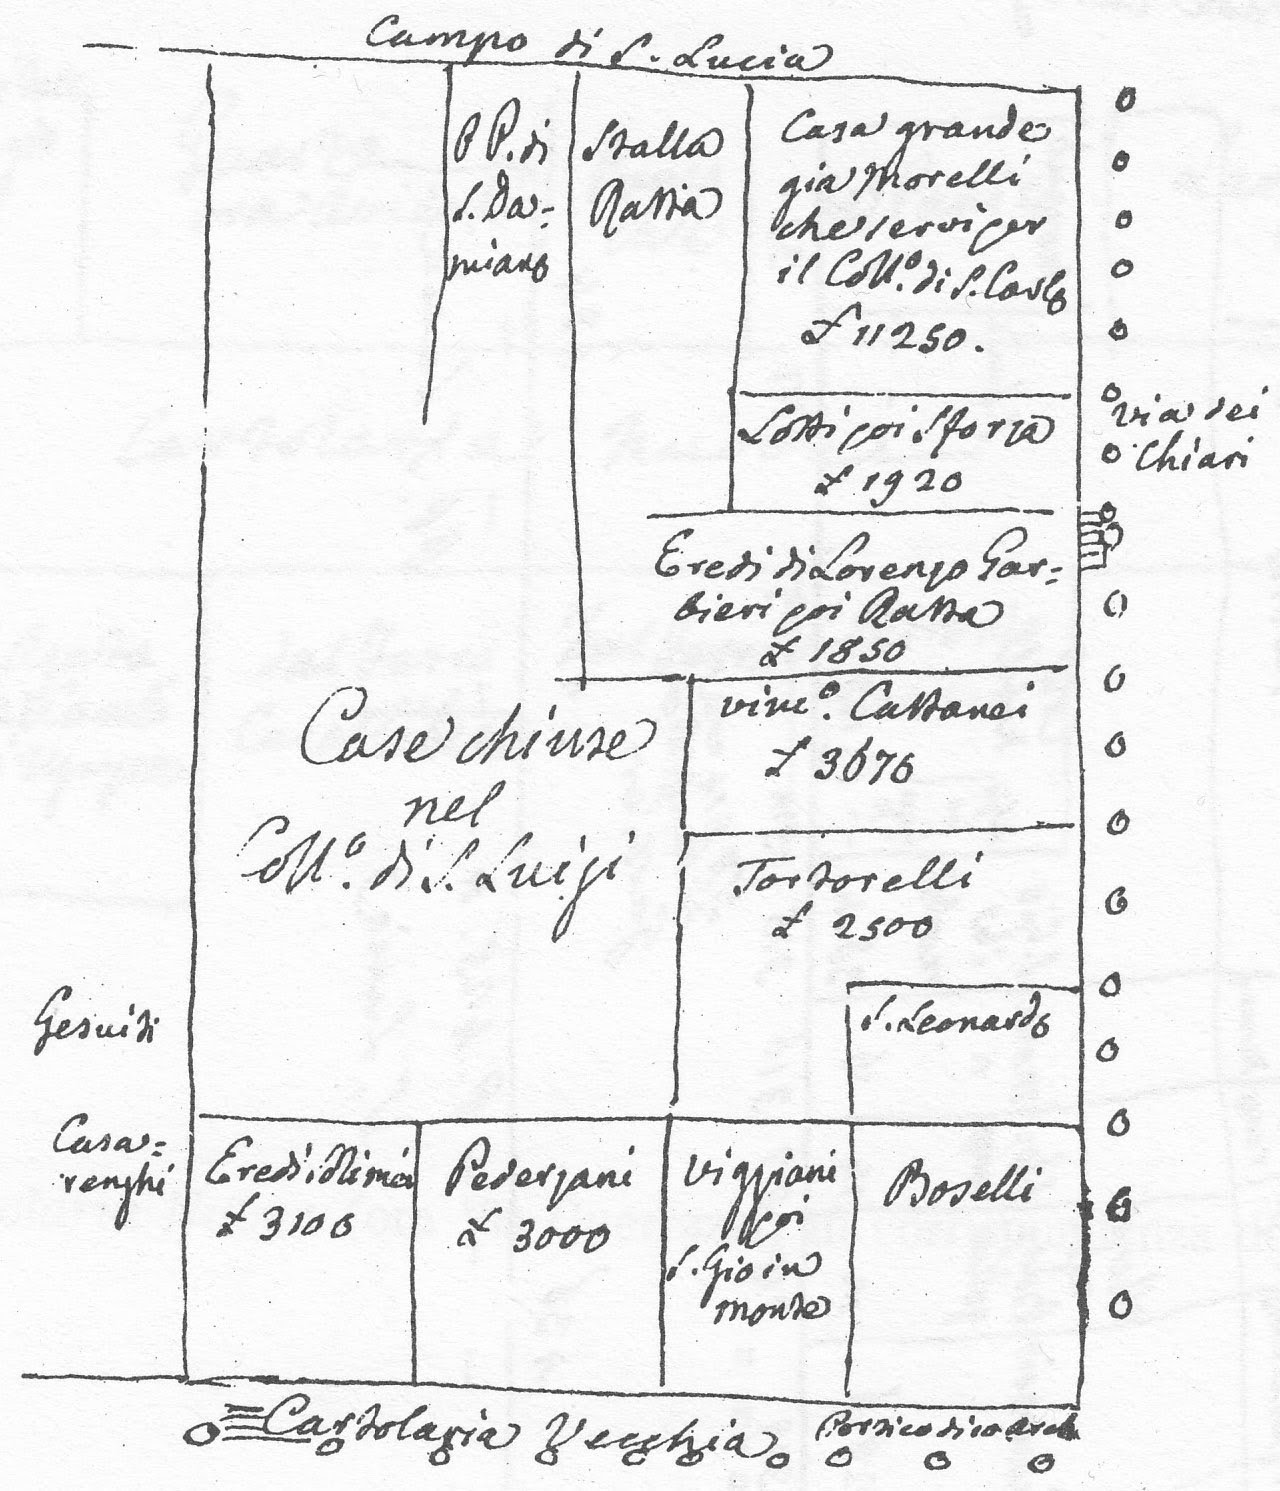 Campo di S. Lucia
PP. di
S. Da=
miano
Stalla
Ratta
Casa grande
già Morelli
che servi per
il Coll.o di S. Carlo
£ 11250.
Lotti poi Sforza
£ 1920
Via dei
Chiari
Eredi di Lorenzo Gar=
bieri poi Ratta
£ 1850
Vinc.o Cattanei
£ 3676
Case chiuse
nel
Coll.o di S. Luigi
Tortorelli
£ 2500
S. Leonardo
Gesuiti
Casa=
renghi
Eredi
£ 3100
Pederzani
£ 3000
Viggiani
poi
S. Gio in
monte
Boselli
Cartolaria Vecchia
Portico di